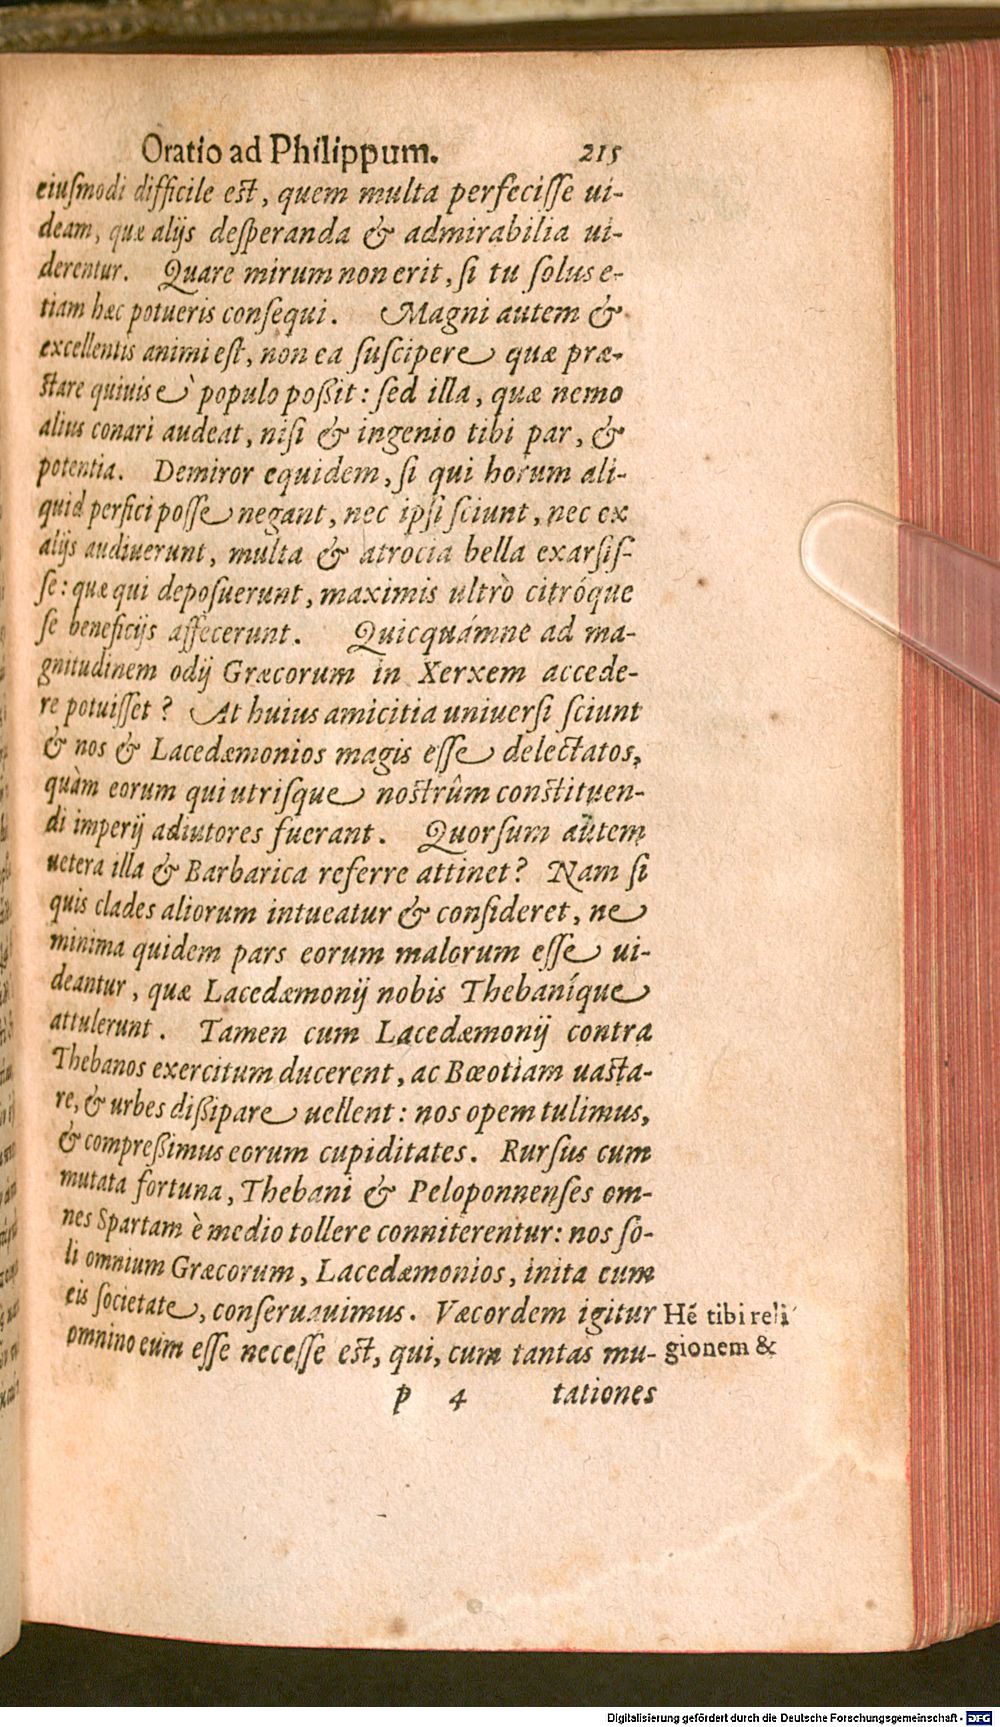 Oratio ad Philippum. 215
eiuſmodi difficile eſt, quem multa perfeciſſe ui-
deam, quæ alijs deſperanda & admirabilia ui-
derentur. Quare mirum non erit, ſi tu ſolus e-
tiam hæc potueris conſequi. Magni autem &
excellentis animi eſt, non ea ſuſcipere quæ præ-
ſtare quiuis è populo poßit: ſed illa, quæ nemo
alius conari audeat, niſi & ingenio tibi par, &
potentia. Demiror equidem, ſi qui horum ali-
quid perfici poſſe negant, nec ipſi ſciunt, nec ex
alijs audiuerunt, multa & atrocia bella exarſiſ-
ſe: quæ qui depoſuerunt, maximis ultrò citróque
ſe beneficijs affecerunt. Quicquámne ad ma-
gnitudinem odij Græcorum in Xerxem accede-
re potuiſſet? At huius amicitia uniuerſi ſciunt
& nos & Lacedæmonios magis eſſe delectatos,
quàm eorum qui utriſque noſtrûm conſtituen-
di imperij adiutores fuerant. Quorſum autem
uetera illa & Barbarica referre attinet? Nam ſi
quis clades aliorum intueatur & conſideret, ne
minima quidem pars eorum malorum eſſe ui-
deantur, quæ Lacedæmonij nobis Thebaníque
attulerunt. Tamen cum Lacedæmonij contra
Thebanos exercitum ducerent, ac Bœotiam uaſta-
re, & urbes dißipare uellent: nos opem tulimus,
& compreßimus eorum cupiditates. Rurſus cum
mutata fortuna, Thebani & Peloponnenſes om-
nes Spartam è medio tollere conniterentur: nos ſo-
li omnium Græcorum, Lacedæmonios, inita cum
eis ſocietate, conſeruauimus. Væcordem igitur
omnino eum eſſe neceſſe eſt, qui, cum tantas mu-
Hẽ tibi reli
gionem &
p 4 tationes
Digitalisierung gefördert durch die Deutsche Forschungsgemeinschaft - DFG